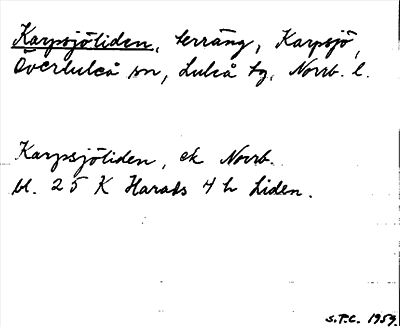 Karpsjöliden, terräng, Karpsjö,
Överluleå sn, Luleå tg, Norrb. l.
Karpsjöliden, ek Norrb.
bl. 25 K Harads 4 h Liden.
S.T.C. 1959.